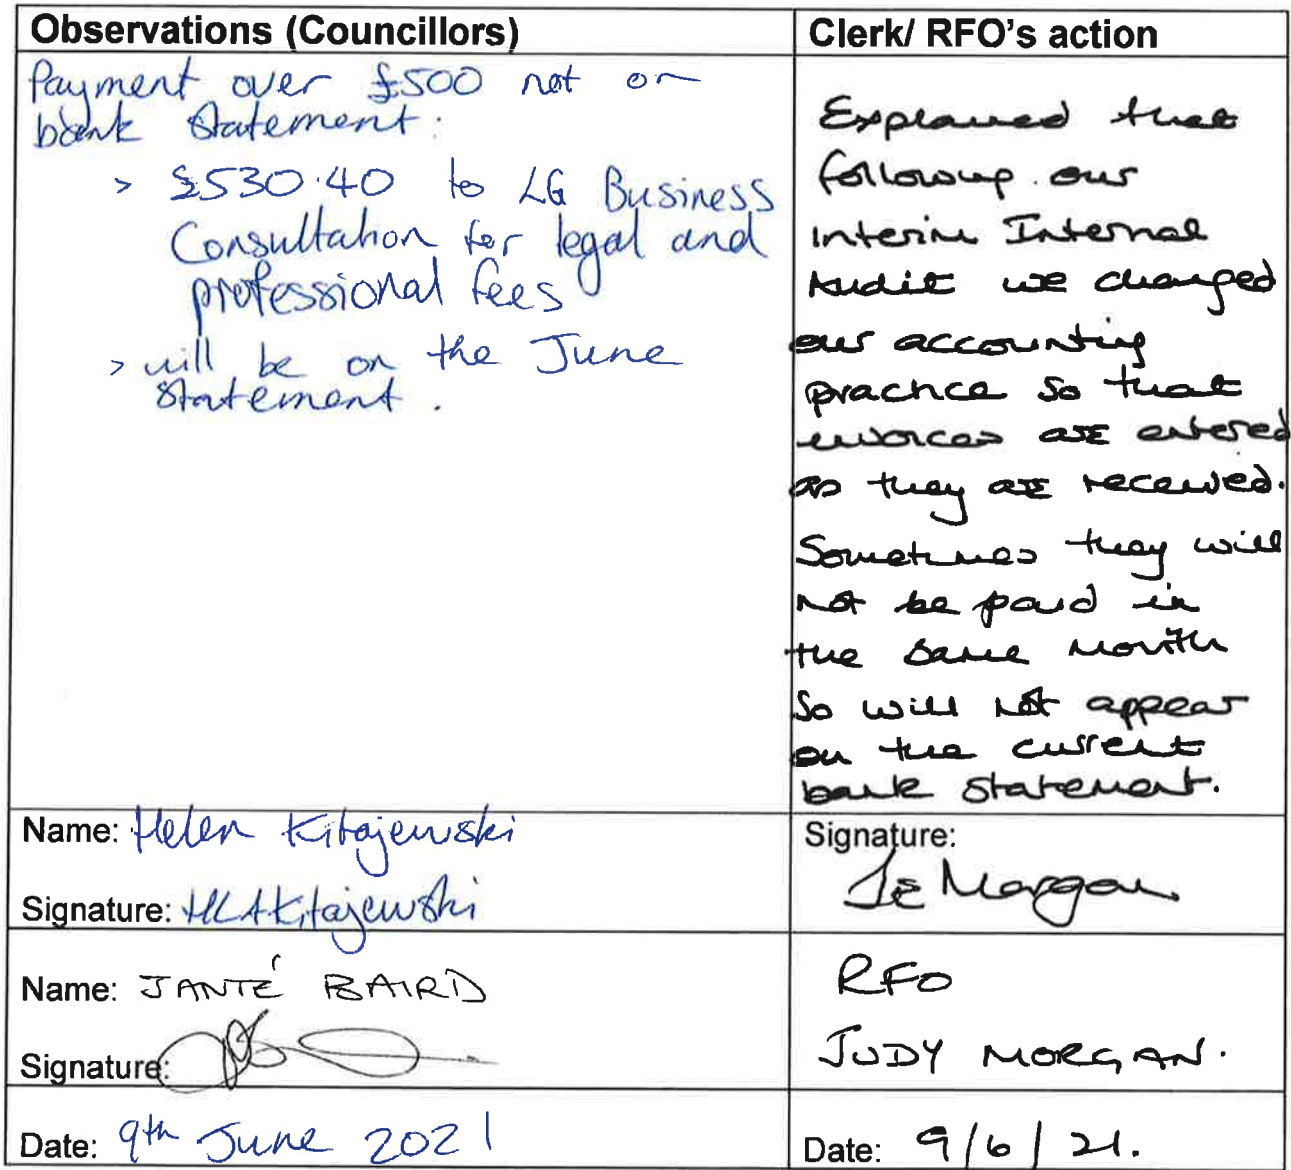 Observations (Councillors)
Payment over £500 not on
bank statement:
> £530.40 to LG Business
Consultation for legal and
professional fees
> will be on the June
statement.
Clerk/ RFO's action
Explained that
following our
Interim Internal
Audit we changed
our accounting
practice so that
invoices are entered
as they are received.
Sometimes they will
not be paid in
the same month
so will not appear
on the current
bank statement.
Name: Helen Kitajewski
Signature: HLAKitajewski
Signature:
JE Morgan
Name: JANTÉ BAIRD
Signature:
RFO
JUDY MORGAN.
Date: 9th June 2021
Date: 9/6/21.